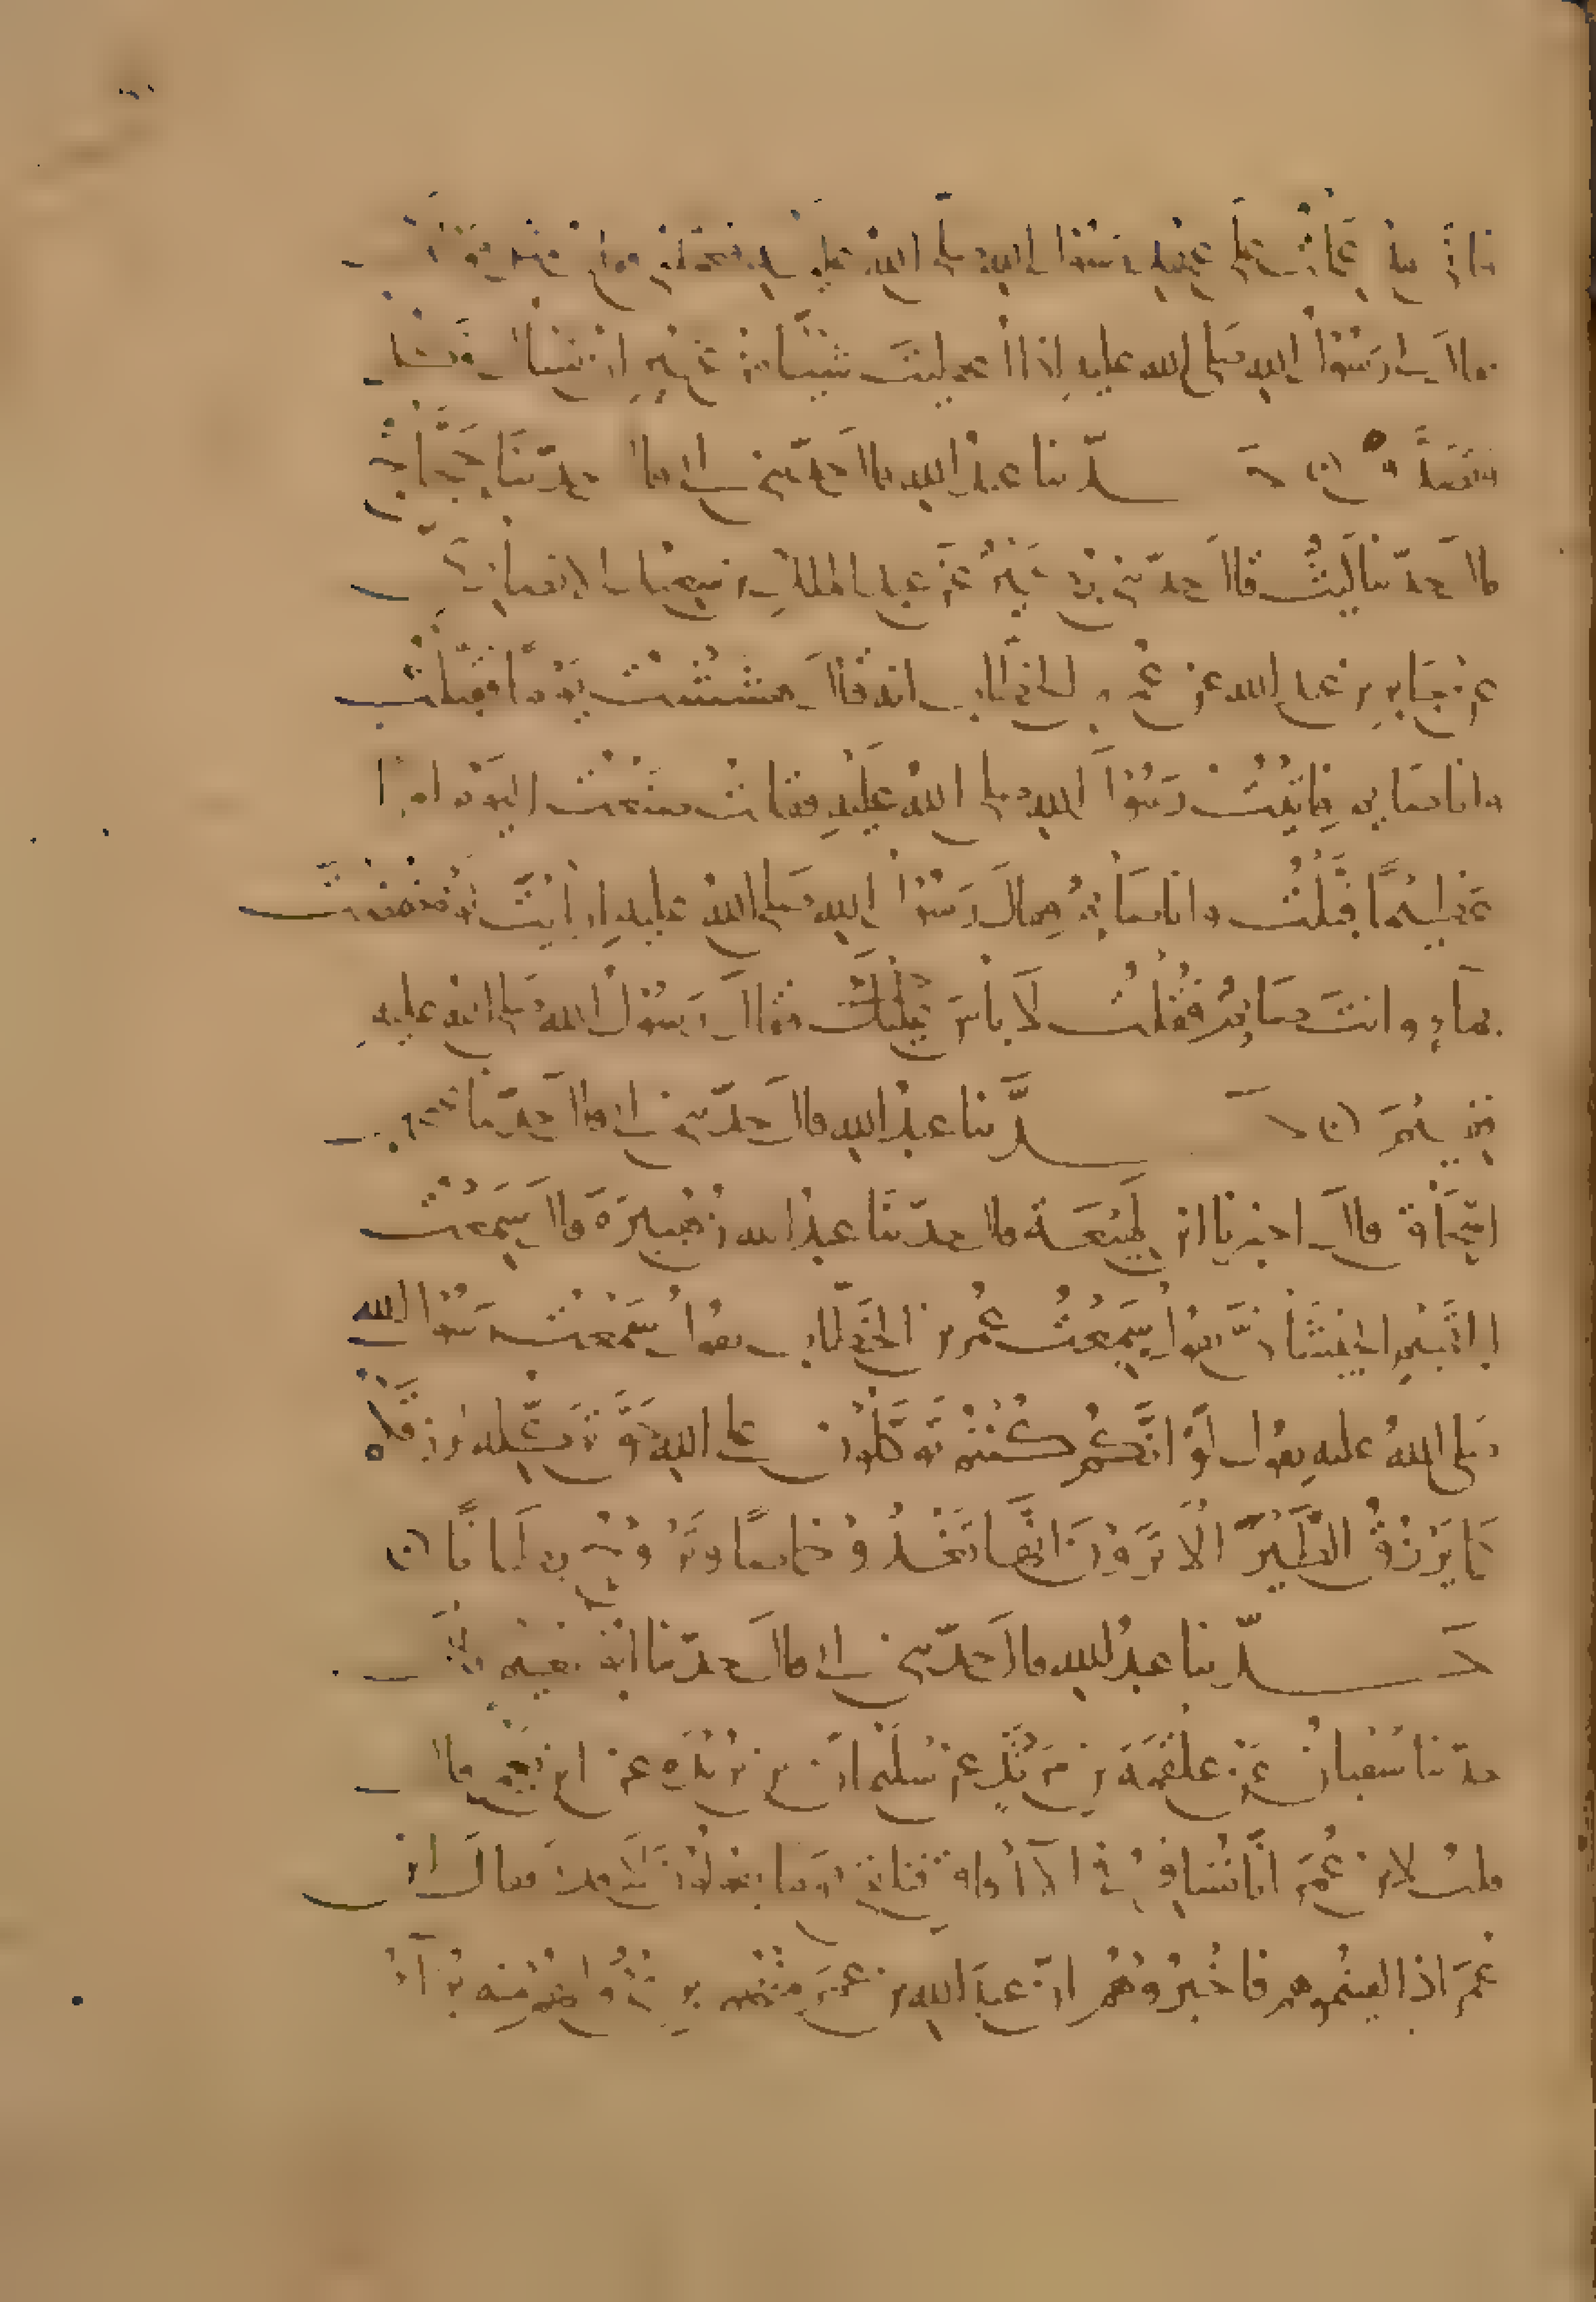 قال رسول الله صلى الله عليه اذا اعطيت شيئا من غير ان تسال فكل
حدثنا عبد الله قال حدثني ابي قال حدثنا حجاج
قال حدثنا ليث قال حدثني بكير عن عبد الملك بن سعيد الانصاري
عن جابر بن عبد الله عن عمر بن الخطاب انه قال هششت يوما فقبلت
وانا صايم فاتيت رسول الله صلى الله عليه فقلت صنعت اليوم امرا
عظيما قبلت وانا صايم فقال رسول الله صلى الله عليه ارايت لو تمضمضت
بماء وانت صايم فقلت لا باس بذلك فقال رسول الله صلى الله عليه
ففيم حدثنا عبد الله قال حدثني ابي قال حدثنا يحيى بن
اسحاق قال اخبرنا ابن لهيعة قال حدثنا عبد الله بن هبيرة قال سمعت
ابا تميم الجيشاني يقول سمعت عمر بن الخطاب يقول سمعت رسول الله
صلى الله عليه يقول لو انكم كنتم توكلون على الله حق توكله لرزقكم
كما يرزق الطير الا ترون انها تغدو خماصا وتروح بطانا
حدثنا عبد الله قال حدثني ابي قال حدثنا ابو نعيم قال
حدثنا سفيان عن علقمة بن مرثد عن سليمان بن بريدة عن ابن يعمر قال
قلت لابن عمر انا نسافر في الافاق فنلقى قوما يقولون لا قدر فقال ابن
عمر اذا لقيتموهم فاخبروهم ان عبد الله بن عمر منهم بري وانهم منه براء